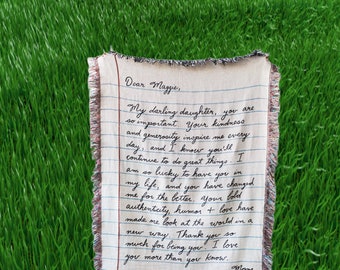 Dear Maggie,
My darling daughter, you are
so important. Your kindness
and generosity inspire me every
day, and I know you'll
continue to do great things. I
am so lucky to have you in
my life, and you have changed
me for the better. Your bold
authenticity, humor & love have
made me look at the world in a
new way. Thank you so
much for being you. I love
you more than you know.